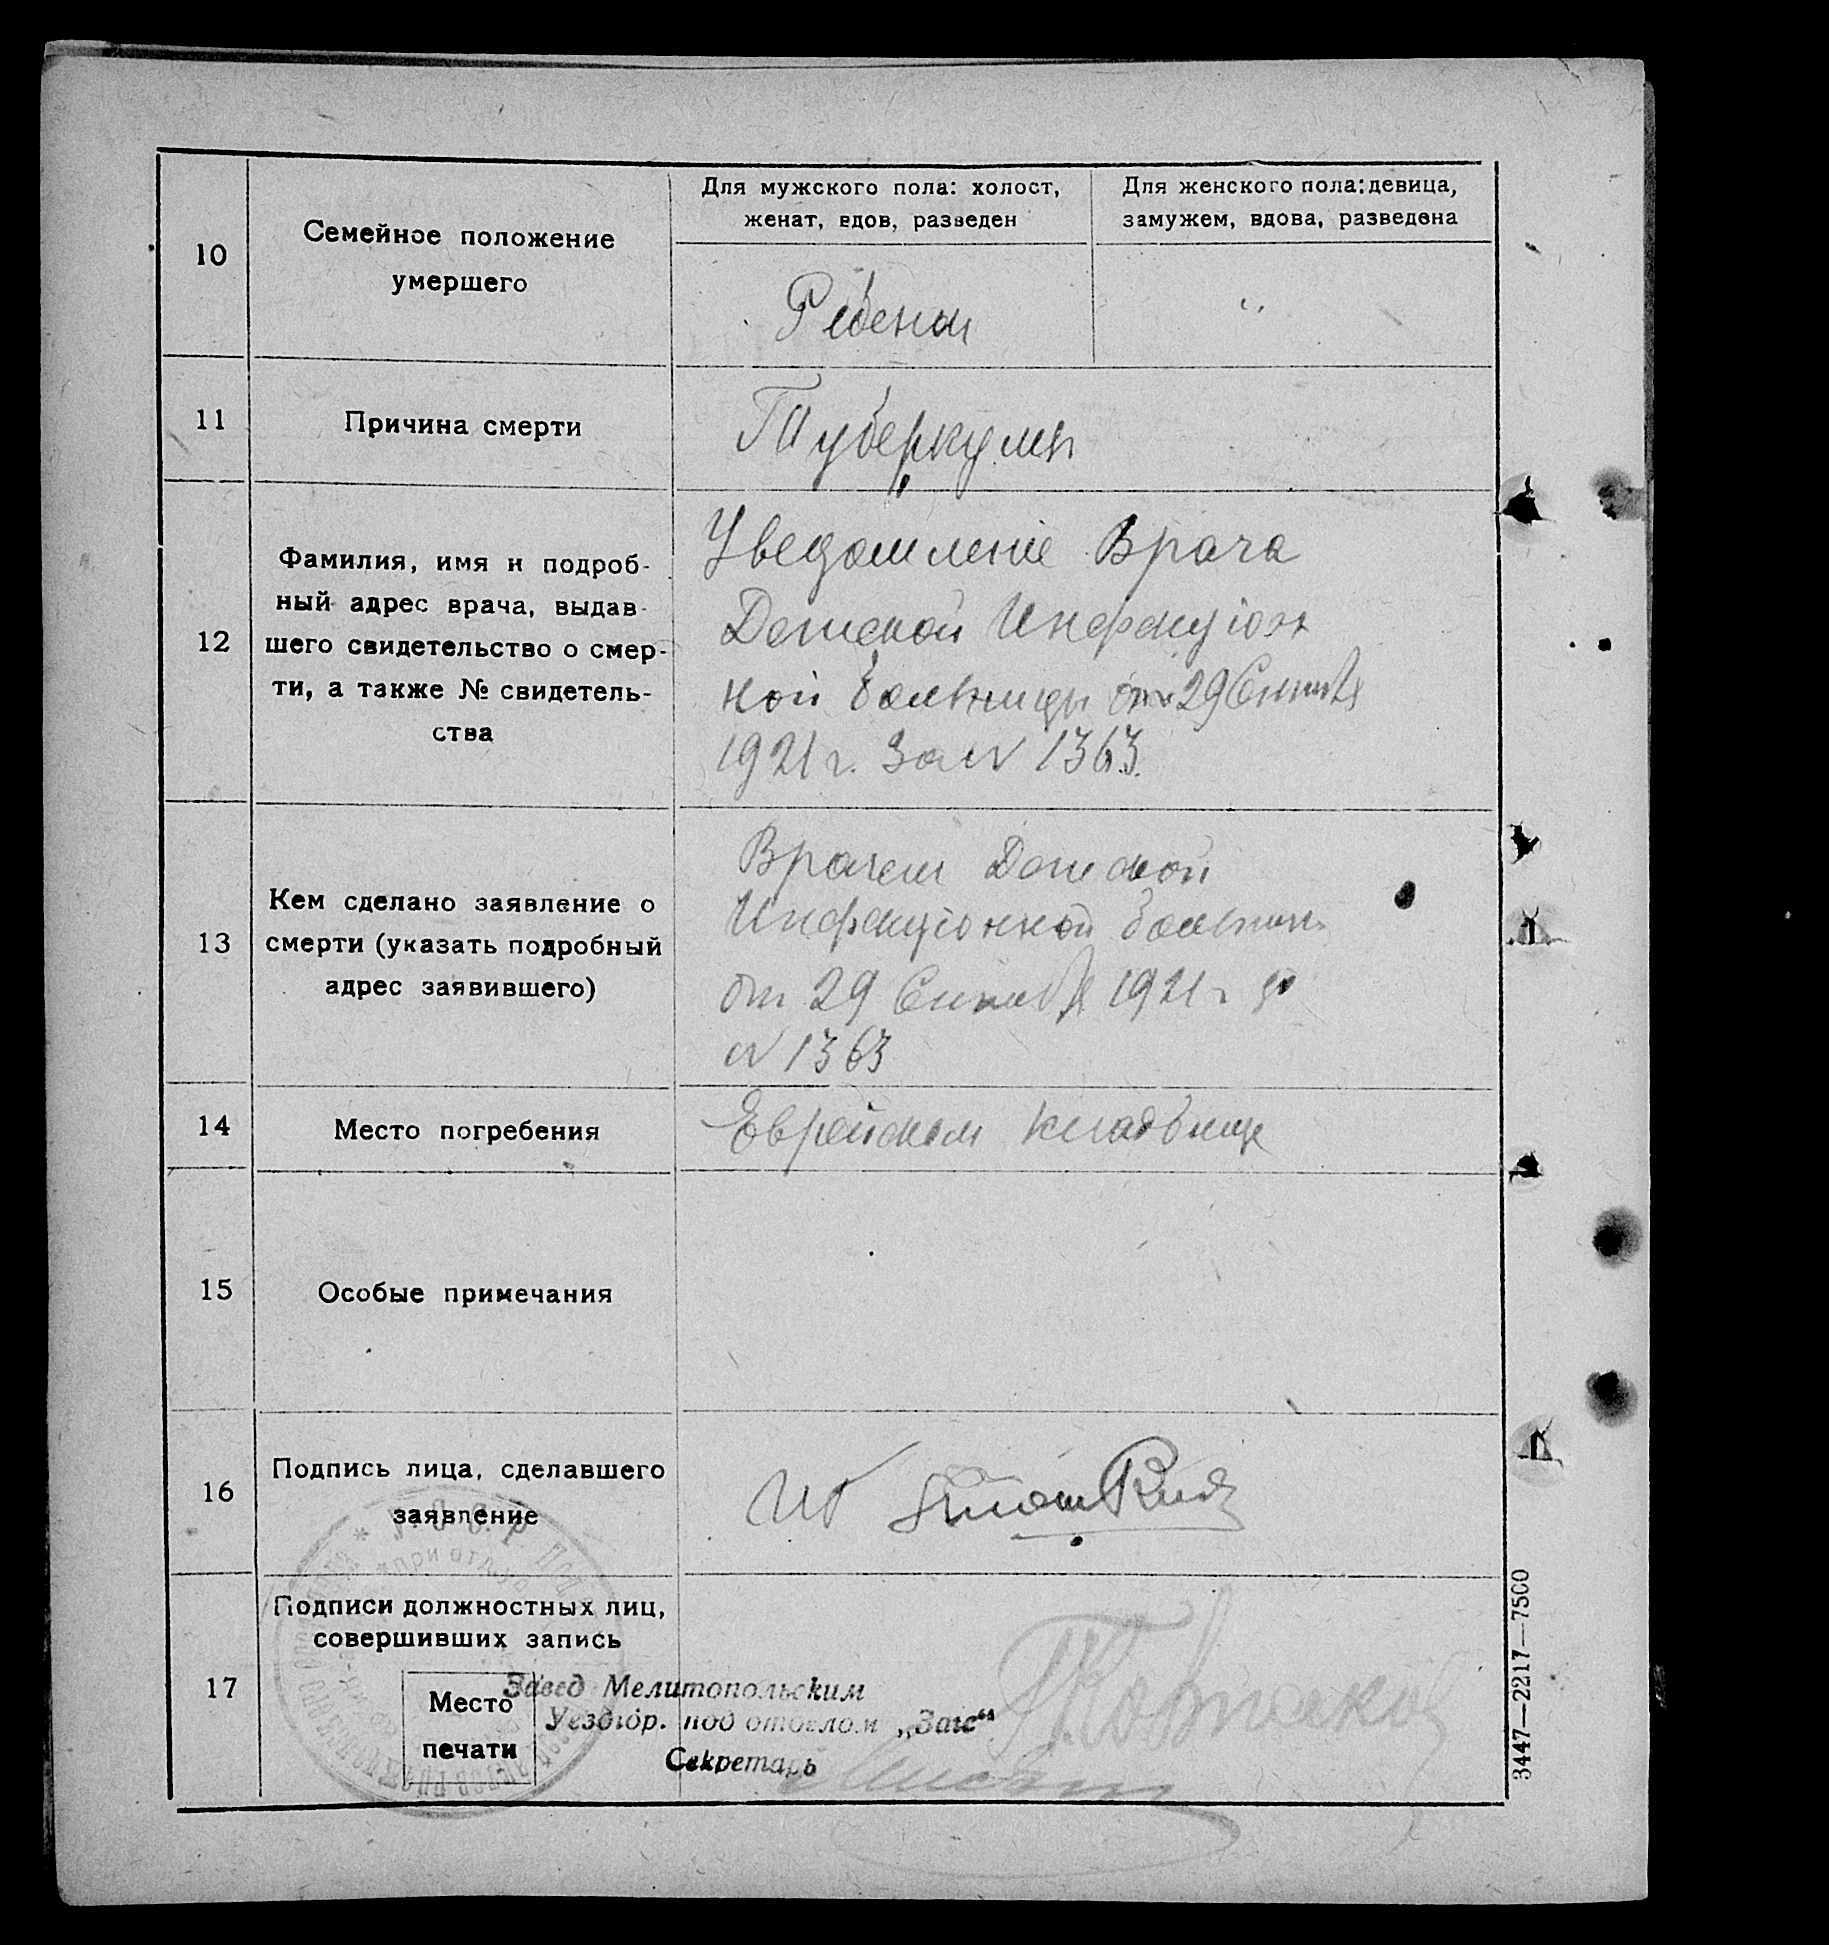 10
Семейное положение
умершего
Для мужского пола: холост,
женат, вдов, разведен
Для женского пола: девица,
замужем, вдова, разведена
Ребенок
"
11
Причина смерти
Туберкулез
12
Фамилия, имя и подроб-
ный адрес врача, выдав-
шего свидетельство о смер-
ти, а также № свидетель-
ства
Уведомление Врача
Детской Инфекцион
ной больницы от 29 Сентяб
1921 г. за № 1363.
13
Кем сделано заявление о
смерти (указать подробный
адрес заявившего)
Врачем Детской
Инфекционной больниц
от 29 Сентяб 1921 г за
№ 1363
14
Место погребения
Еврейском кладбище
15
Особые примечания
16
Подпись лица, сделавшего
заявление
17
Подписи должностных лиц,
совершивших запись
Место
печати
Завед Мелитопольским
Уездгор. под отделом „Загс“
Секретарь
3447—2217—7500